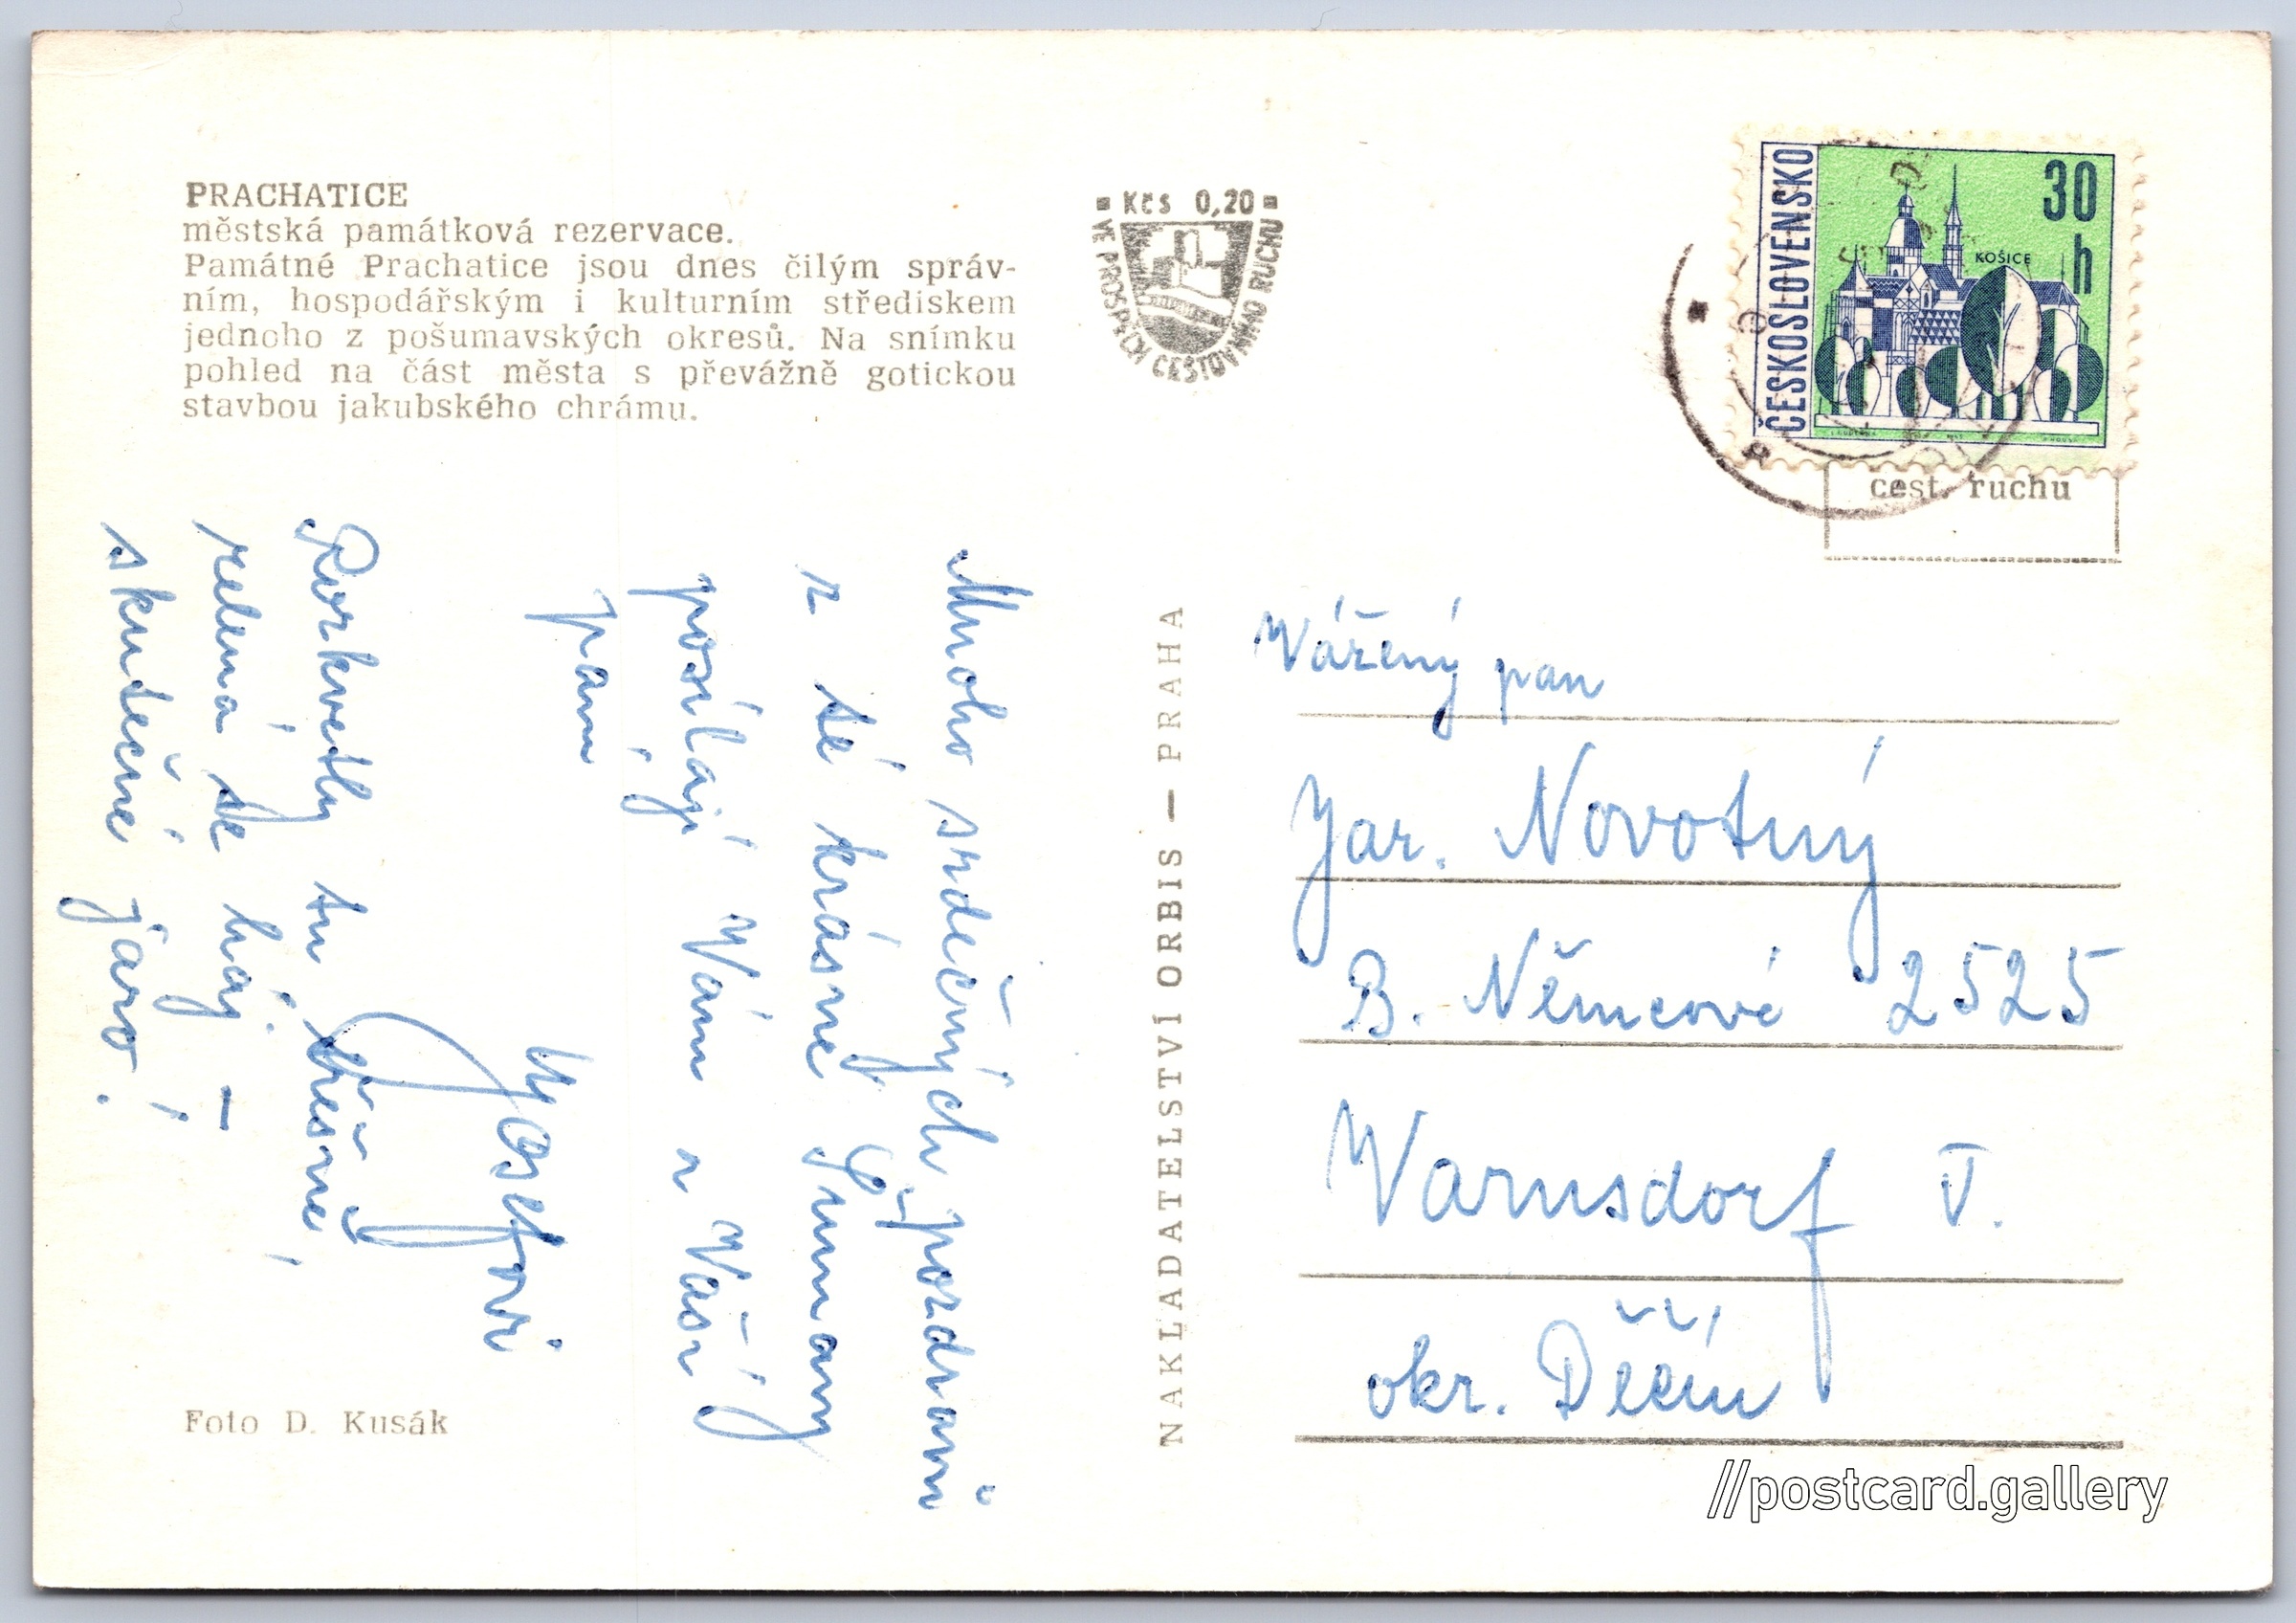 PRACHATICE
městská památková rezervace.
Památné Prachatice jsou dnes čilým správ-
ním, hospodářským i kulturním střediskem
jednoho z pošumavských okresů. Na snímku
pohled na část města s převážně gotickou
stavbou jakubského chrámu.
Kčs 0,20
VE PROSPĚCH CESTOVNÍHO RUCHU
ČESKOSLOVENSKO
30
h
KOŠICE
cest. ruchu
Mnoho srdečných pozdravů
z té krásné Šumavy
posílají Vám z Vaší
paní
Rozkvetly tu třešně,
zelená se háj –
skutečné jaro!
NAKLADATELSTVÍ ORBIS — PRAHA
Vážený pan
Jar. Novotný
B. Němcové 2525
Varnsdorf I.
okr. Děčín
Foto D. Kusák
//postcard.gallery